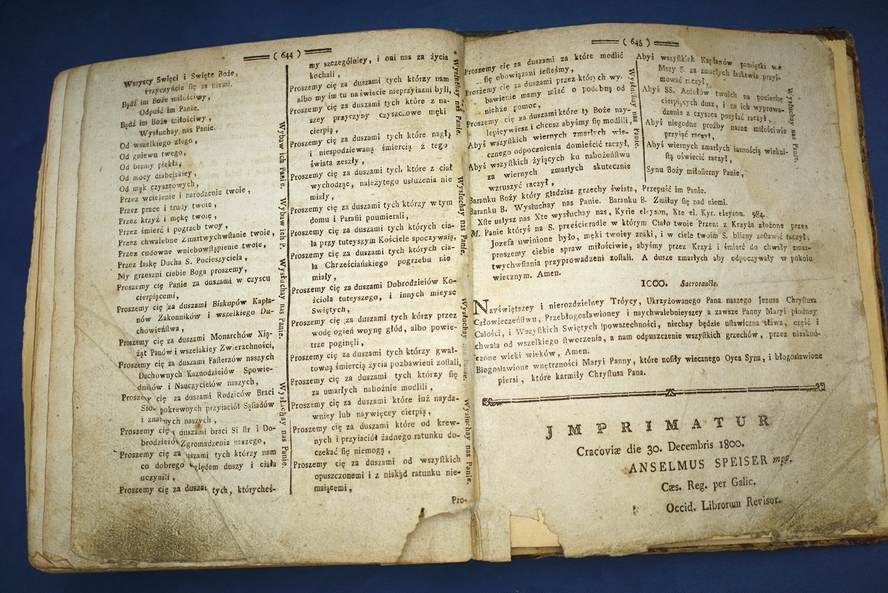 ( 644 )
Wszyscy Swięci i Swięte Boże,
przyczyńcie się za niemi.
Bądź im Boże miłościwy,
Odpuść im Panie.
Bądź im Boże miłościwy,
Wysłuchay nas Panie.
Od wszelkiego złego,
Od gniewu twego,
Od bramy piekła,
Od mocy diabelskiey,
Od mąk czyscowych,
Przez wcielenie i narodzenie twoie,
Przez prace i trudy twoie,
Przez krzyż i mękę twoie,
Przez śmierć i pogrzeb twoy,
Przez chwalebne Zmartwychwstanie twoie,
Przez cudowne wniebowstąpienie twoie,
Przez łaskę Ducha S. Pocieszyciela,
My grzeszni ciebie Boga prosemy,
Prosemy cię Panie za duszami w czyscu
cierpiącemi,
Prosemy cię za duszami Biskupow Kapła-
nów Zakonników i wszelkiego Du-
chowieństwa,
Proszemy cię za duszami Monarchów Xią-
żąt Panów i wszelkiey Zwierzchności,
Proszemy cię za duszami Pasterzów naszych
Duchownych Kaznodzieiów Spowie-
dników i Nauczycielów naszych,
Proszemy cię za duszami Rodziców Braci
Sióstr pokrewnych przyiaciół Sąsiadów
i znaiomych naszych,
Proszemy cię za duszami braci Sióstr i Do-
brodzieiów Zgromadzenia naszego,
Proszemy cię za duszami tych którzy nam
co dobrego względem duszy i ciała
uczynili,
Proszemy cię za duszami tych, którycheś-
Wybaw ich Panie. Wybaw ich P. Wysłuchay nas Panie. Wysłuchay nas Panie.
my szczególniey, i oni nas za życia
kochali,
Proszemy cię za duszami tych którzy nam
albo my im tu na świecie nieprzyiaźni byli,
Proszemy cię za duszami tych które z na-
szey przyczyny czyscowe męki
cierpią,
Proszemy cię za duszami tych które nagłą
i niespodziewaną śmiercią z tego
świata zeszły,
Proszemy cię za duszami tych, które z ciał
wychodząc, należytego usłużenia nie
miały,
Proszemy cię za duszami tych którzy w tym
domu i Parafii poumierali,
Proszemy cię za duszami tych których cia-
ła przy tuteyszym Kościele spoczywaią,
Proszemy cię za duszami tych których cia-
ła Chrześciańskiego pogrzebu nie
miały,
Proszemy cię za duszami Dobrodzieiów Ko-
ścioła tuteyszego, i innych mieysc
Swiętych,
Proszemy cię za duszami tych którzy przez
wodę ogień woynę głód, albo powie-
trze poginęli,
Proszemy cię za duszami tych którzy gwał-
towną śmiercią życia pozbawieni zostali,
Proszemy cię za duszami tych którzy się
za umarłych nabożnie modlili,
Proszemy cię za duszami które iuż nayda-
wniey lub naywięcey cierpią,
Proszemy cię za duszami które od krew-
nych i przyiaciół żadnego ratunku do-
czekać się niemogą,
Proszemy cię za duszami od wszystkich
opuszczonemi i z nikąd ratunku nie-
maiącemi,
Pro-
Wysłuchay nas Panie. Wysłuchay nas Panie. Wysłuchay nas Panie. Wysłuchay nas Panie.
( 645 )
Proszemy cię za duszami za które modlić
się obowiązani iesteśmy,
Proszemy cię za duszami przez których wy-
bawienie mamy mieć o podobną od
nichże pomoc,
Proszemy cię za duszami które ty Boże nay-
lepiey wiesz i chcesz abyśmy się modlili
Abyś wszystkich wiernych zmarłych wie-
cznego odpocznienia domieścić raczył,
Abyś wszystkich żyiących ku nabożeństwu
za wiernych zmarłych skutecznie
wzruszyć raczył,
Wysłuchay nas Panie.
Abyś wszystkich Kapłanów pamiątki we
Mszy S. za zmarłych łaskawie przyi-
mować raczył,
Abyś SS. Aniołów twoich na pociechę
cierpiących dusz, i na ich wyprowa-
dzenie z czysca posyłać raczył,
Abyś niegodne prośby nasze miłościwie
przyiąć raczył,
Abyś wiernych zmarłych iasnością wiekui-
stą oświecić raczył,
Synu Boży miłosierny Panie,
Wysłuchay nas Panie.
Baranku Boży który gładzisz grzechy świata, Przepuść im Panie.
Baranku B. Wysłuchay nas Panie. Baranku B. Zmiłuy się nad niemi.
Xte usłysz nas Xte wysłuchay nas, Kyrie eleyson, Xte el. Kyr. eleyson. 984.
M. Panie któryś na S. prześcieradle w którym Ciało twoie Przen: z Krzyża złożone przez
Jozefa uwinione było, męki twoiey znaki, i w ciele twoim S. blizny zostawić raczył;
prosiemy ciebie spraw miłościwie, abyśmy przez Krzyż i śmierć do chwały zmar-
twychwstania przyprowadzeni zostali. A dusze zmarłych aby odpoczywały w pokoiu
wiecznym. Amen.
1000. Sacrosanctæ.
Nayświętszey i nierozdzielney Tróycy, Ukrzyżowanego Pana naszego Jezusa Chrystusa
Człowieczeństwu, Przebłogosławioney i naychwalebnieyszey a zawsze Panny Maryi płodney
Całości, i Wszystkich Swiętych społeczności, niechay będzie ustawiczna sława, cześć i
chwała od wszelkiego stworzenia, a nam odpuszczenie wszystkich grzechów, przez nieskoń-
czone wieki wieków, Amen.
Błogosławione wnętrzności Maryi Panny, które nosiły wiecznego Oyca Syna, i błogosławione
piersi, które karmiły Chrystusa Pana.
JMPRIMATUR
Cracoviæ die 30. Decembris 1800.
ANSELMUS SPEISER mpp.
Cæs. Reg. per Galic.
Occid. Librorum Revisor.